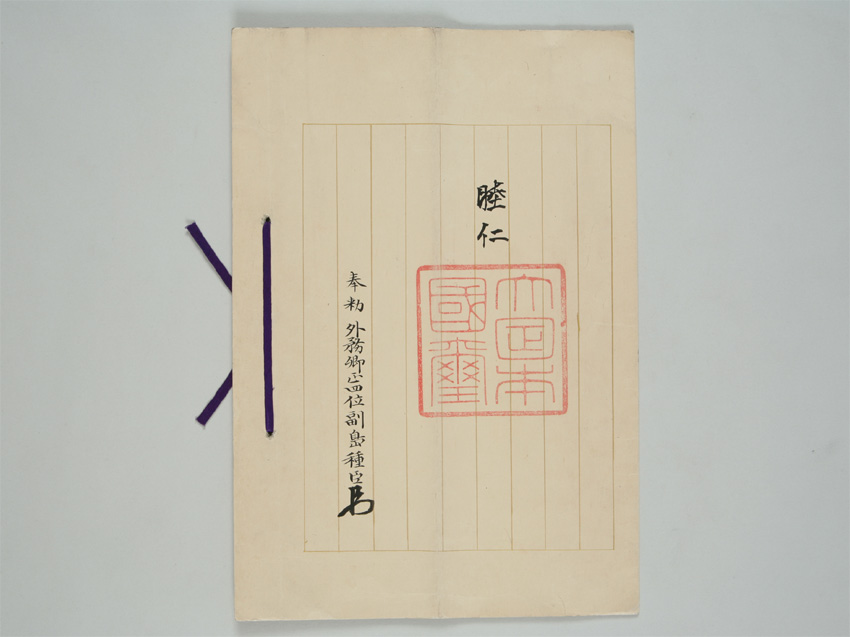 睦仁
大日本
國璽
奉勅外務卿正四位副島種臣